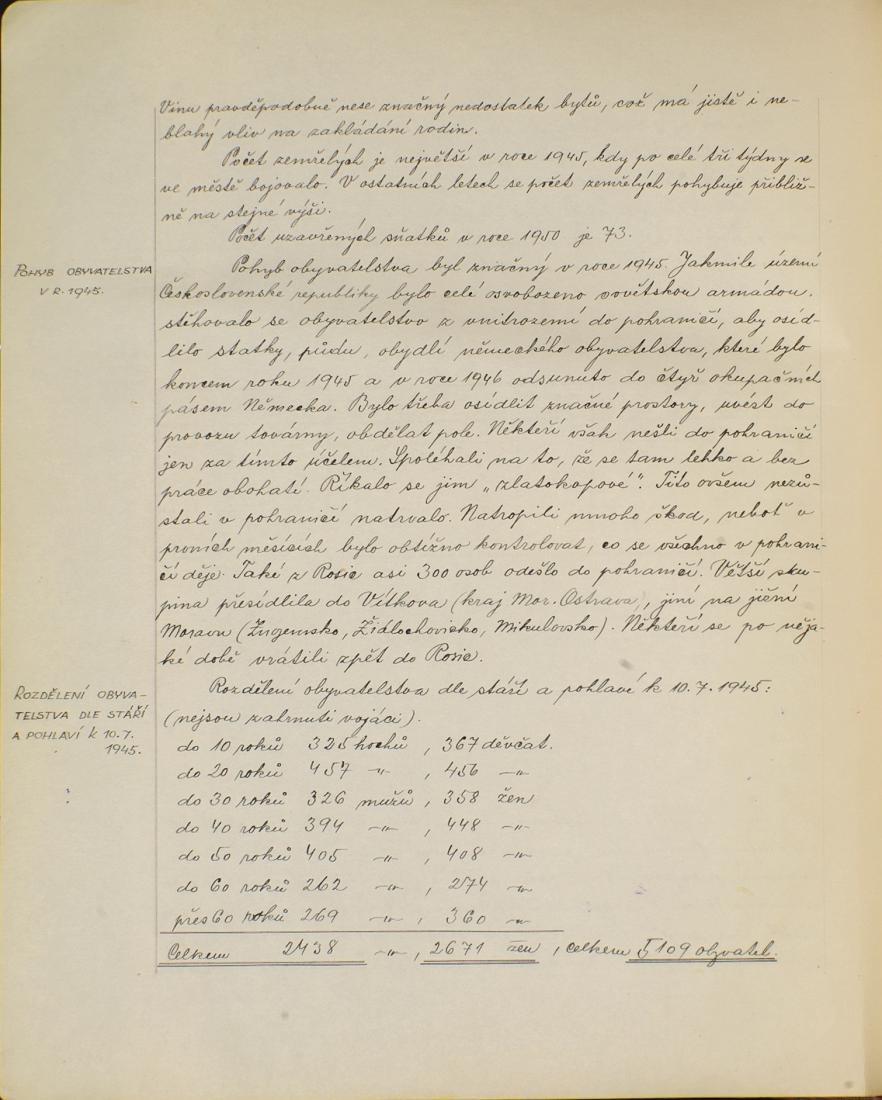 Vinu pravděpodobně nese značný nedostatek bytů, což má jistě i ne-
blahý vliv na zakládání rodin.
Počet zemřelých je největší v roce 1945, kdy po celé tři týdny se
ve městě bojovalo. V ostatních letech se počet zemřelých pohybuje přibliž-
ně na stejné výši.
Počet uzavřených sňatků v roce 1950 je 73.
POHYB OBYVATELSTVA
V R. 1945.
Pohyb obyvatelstva byl značný v roce 1945. Jakmile území
Československé republiky bylo celé osvobozeno sovětskou armádou,
stěhovalo se obyvatelstvo z vnitrozemí do pohraničí, aby osíd-
lilo statky, půdu, obydlí německého obyvatelstva, které bylo
koncem roku 1945 a v roce 1946 odsunuto do čtyř okupačních
pásem Německa. Bylo třeba osídlit značné prostory, uvést do
provozu továrny, obdělat pole. Někteří však nešli do pohraničí
jen za tímto účelem. Spoléhali na to, že se tam lehko a bez
práce obohatí. Říkalo se jim „zlatokopové". Tito ovšem nezů-
stali v pohraničí natrvalo. Natropili mnoho škod, neboť v
prvních měsících bylo obtížno kontrolovat, co se všechno v pohrani-
čí děje. Také z Rosic asi 300 osob odešlo do pohraničí. Větší sku-
pina přesídlila do Vítkova (kraj Mor. Ostrava), jiní na jižní
Moravu (Znojemsko, Židlochovicko, Mikulovsko). Někteří se po něja-
ké době vrátili zpět do Rosic.
ROZDĚLENÍ OBYVA-
TELSTVA DLE STÁŘÍ
A POHLAVÍ K 10.7.
1945.
Rozdělení obyvatelstva dle stáří a pohlaví k 10.7.1945:
(nejsou zahrnuti vojáci).
do 10 roků 325 hochů, 367 děvčat.
do 20 roků 457 -"-, 456 -"-
do 30 roků 326 mužů, 358 žen
do 40 roků 394 -"-, 448 -"-
do 50 roků 405 -"-, 408 -"-
do 60 roků 262 -"-, 274 -"-
přes 60 roků 269 -"-, 360 -"-
Celkem 2438 -"-, 2671 žen, celkem 5109 obyvatel.